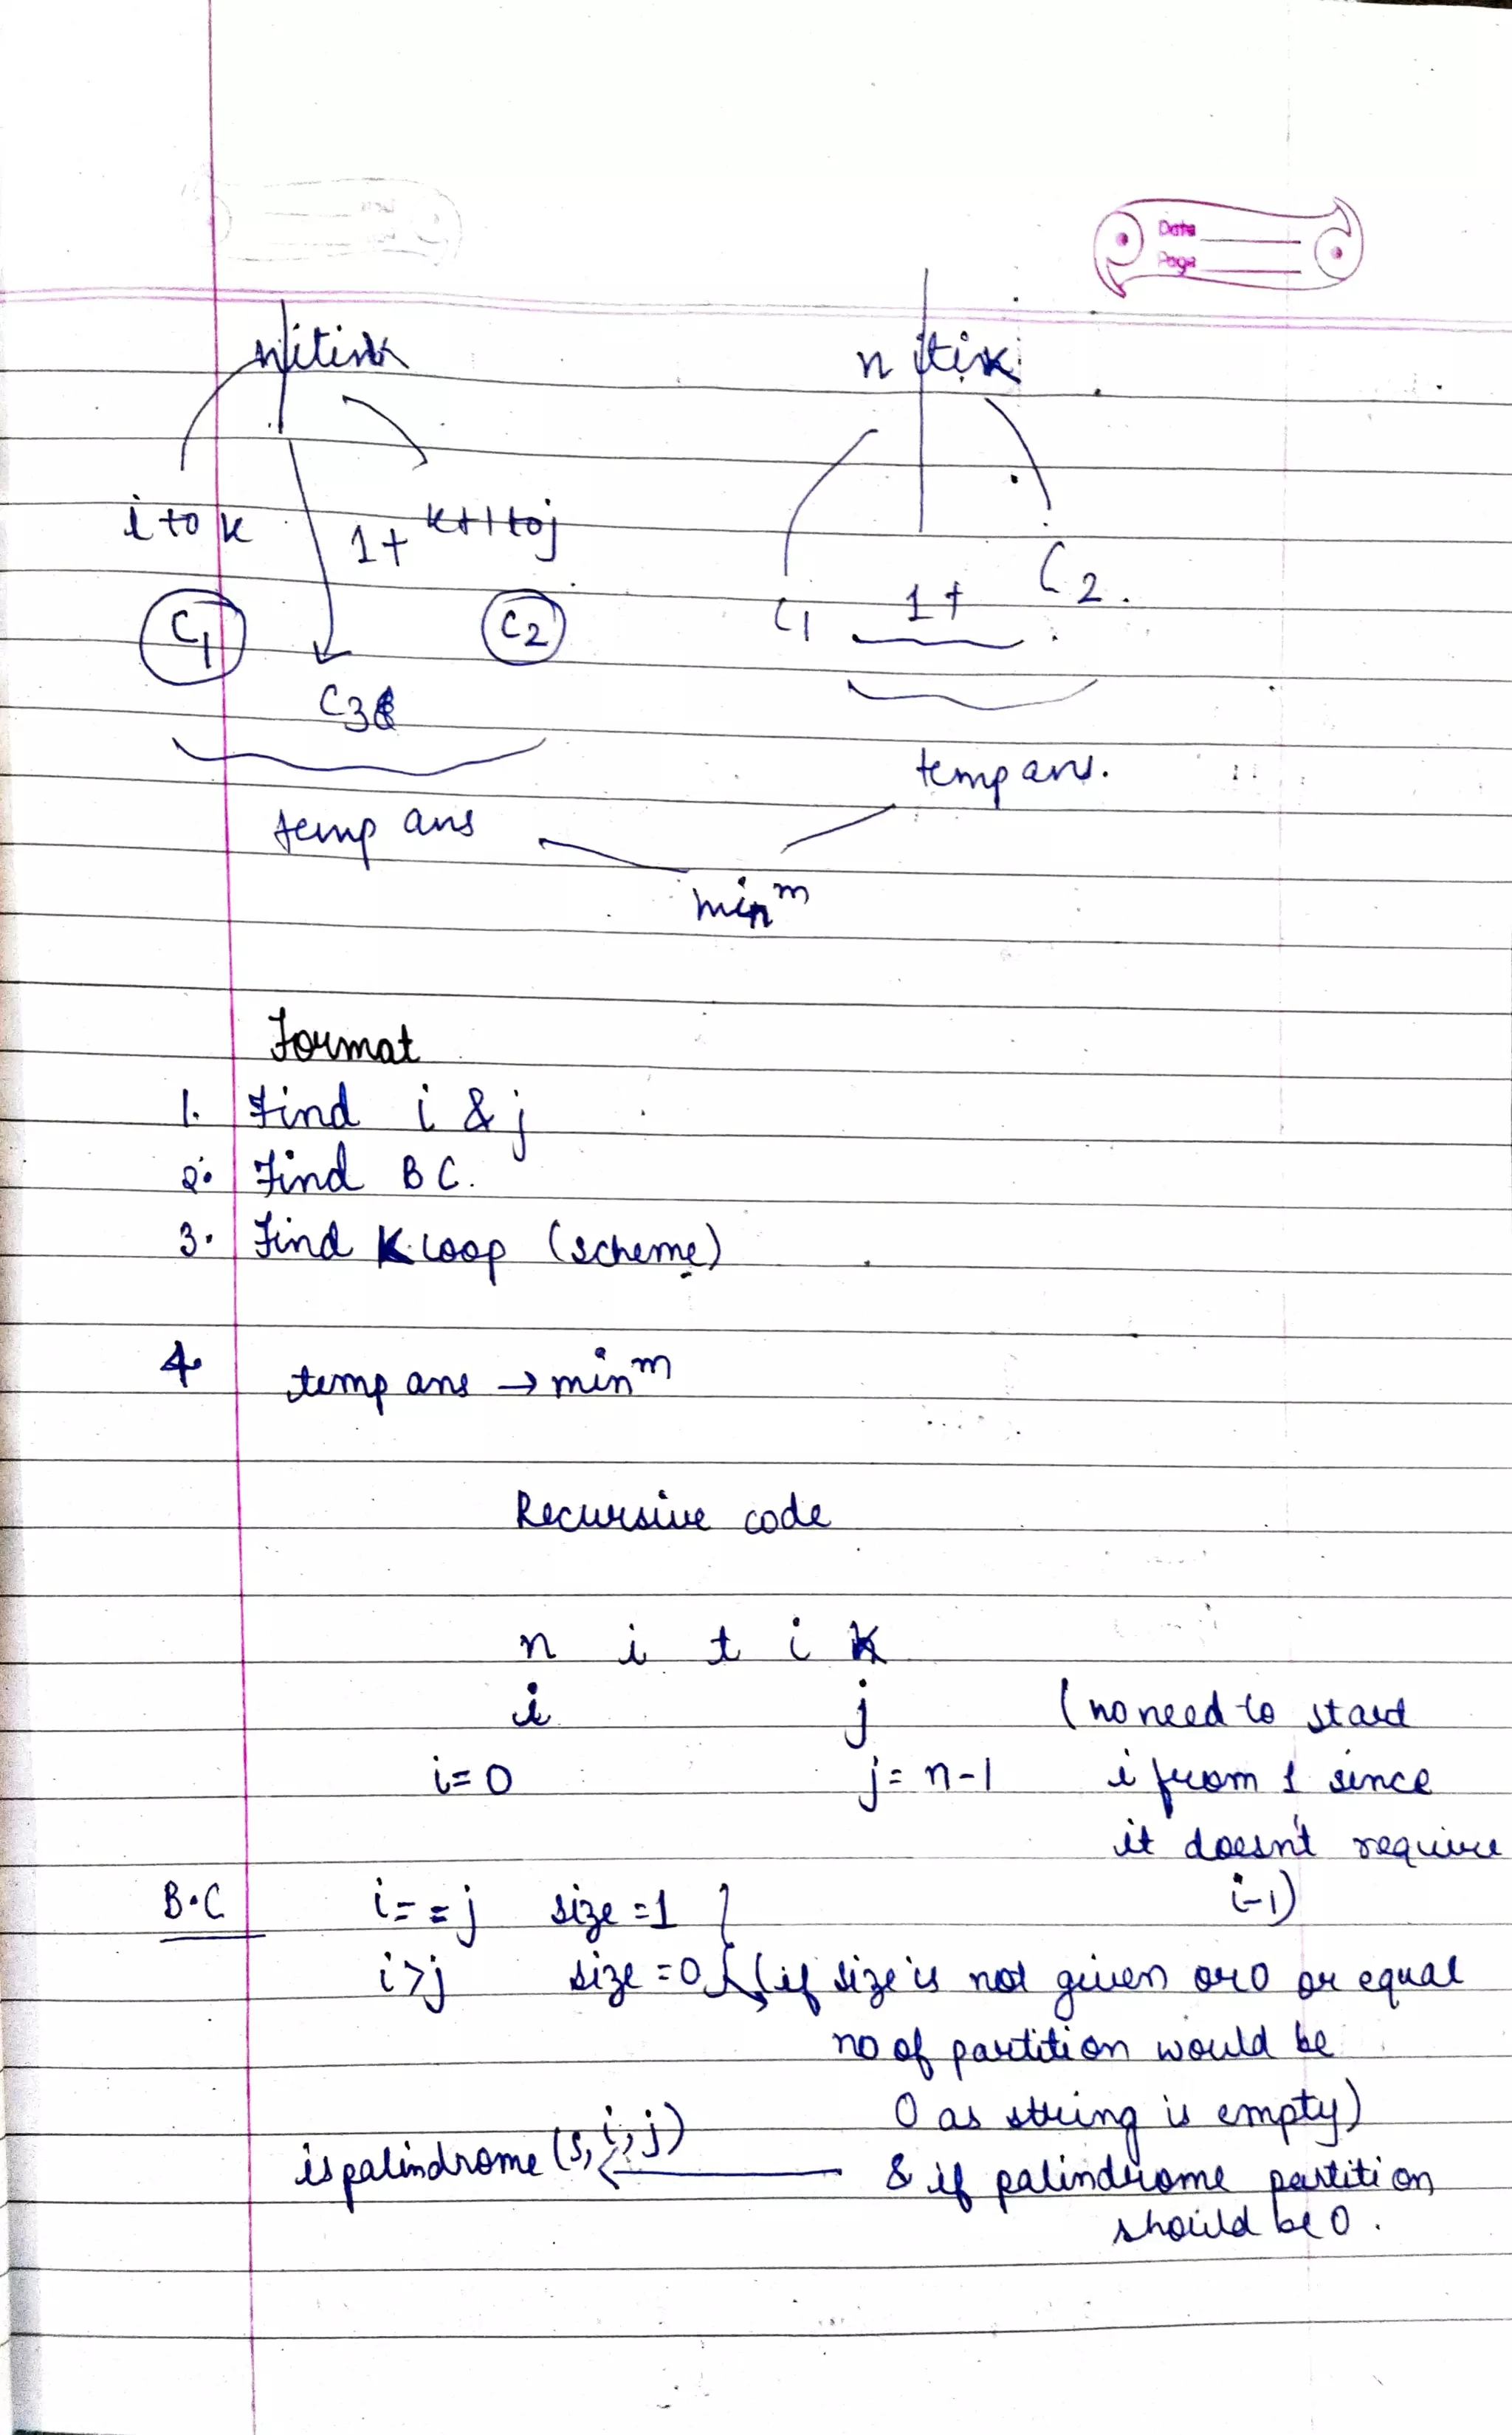 Date
Page
nitink
n itik
i to k
1+
k+1 to j
C1
C2
C3
C1
1+
C2.
temp ans
temp ans.
minm
Format
1. Find i & j
2. Find BC.
3. Find K loop (scheme)
4. temp ans → minm
Recursive code
n i t i k
i j (no need to start
i=0 j=n-1 i from 1 since
it doesn't require
i-1)
B.C i==j size=1
i>j size=0 (if size is not given or 0 or equal
no of partition would be
0 as string is empty)
ispalindrome (s, i, j) & if palindrome partition
should be 0.